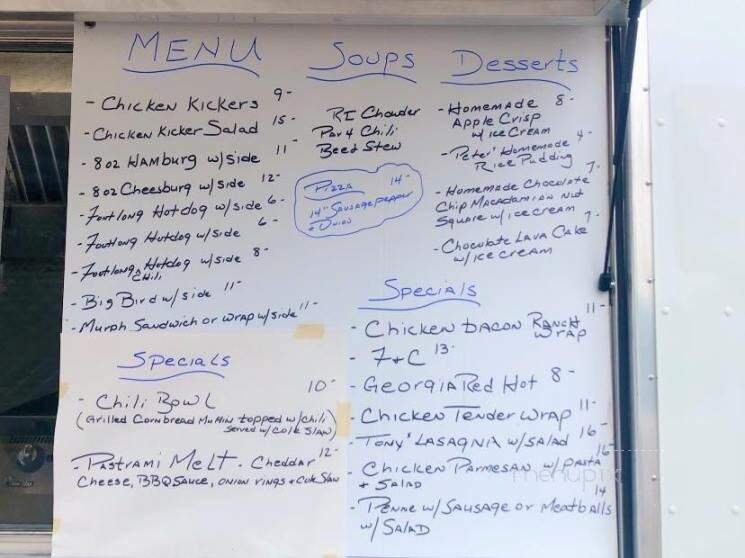 MENU
- Chicken Kickers 9-
- Chicken Kicker Salad 15-
- 8oz Hamburg w/side 11-
- 8oz Cheesburg w/side 12-
- Footlong Hotdog w/side 6-
- Footlong Hotdog w/side 6-
- Footlong Chili Hotdog w/side 8-
- Big Bird w/side 11-
- Murph Sandwich or wrap w/side 11-
Specials
- Chili Bowl 10-
(Grilled Cornbread Muffin topped w/chili
served w/Cole Slaw)
- Pastrami Melt - Cheddar 12-
Cheese, BBQ Sauce, onion rings + Cole Slaw
Soups
RI Chowder
Par 4 Chili
Beed Stew
Pizza 14-
14" Sausage pepper
+ Onion
Desserts
- Homemade 8-
Apple Crisp
w/ice Cream
- Peter' Homemade 4-
Rice Pudding
- Homemade Chocolate 7-
Chip Macadamian Nut
Square w/ice cream
- Chocolate Lava Cake 7-
w/ice cream
Specials
- Chicken bacon Ranch 11-
wrap
- F+C 13-
- Georgia Red Hot 8-
- Chicken Tender wrap 11-
- Tony' Lasagnia w/salad 16-
- Chicken Parmesan w/pasta 16-
+ Salad
- Penne w/Sausage or Meatballs 14
w/Salad
menupix